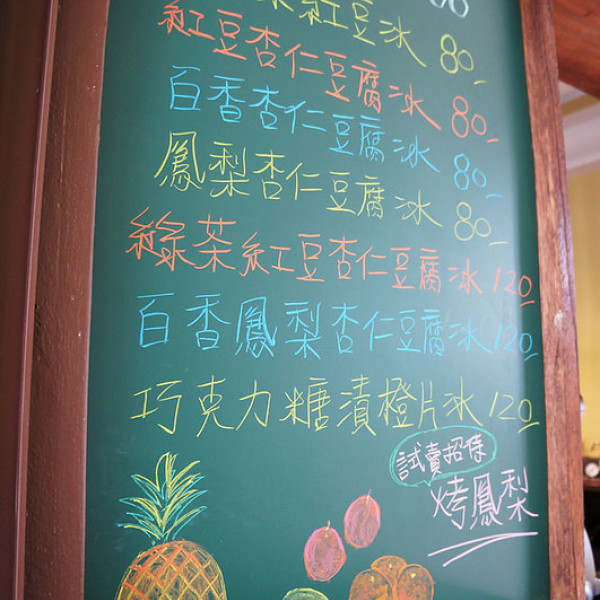 紅豆冰 80
紅豆杏仁豆腐冰 80
百香杏仁豆腐冰 80
鳳梨杏仁豆腐冰 80
綠茶紅豆杏仁豆腐冰 120
百香鳳梨杏仁豆腐冰 120
巧克力糖漬橙片冰 120
試賣招待
烤鳳梨